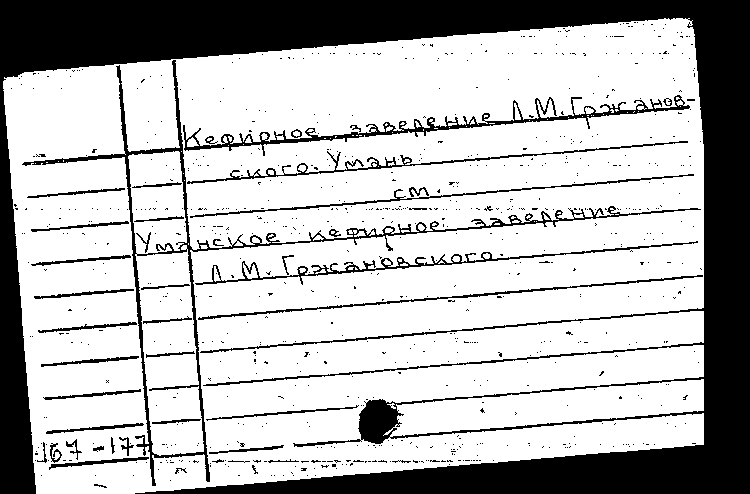 Кефирное заведение Л.М.Гржанов-
ского. Умань
см.
Уманское кефирное заведение
Л.М. Гржановского.
167-177